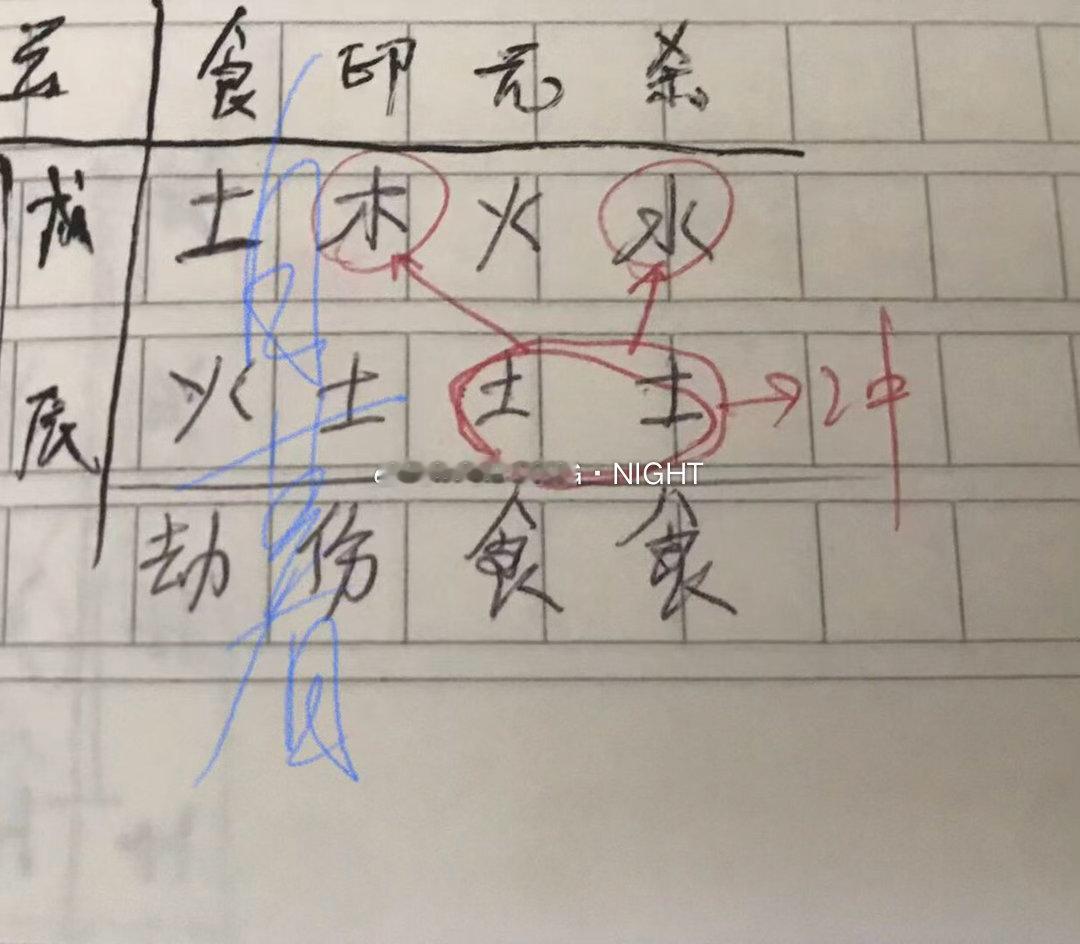 食 印 元 杀
戌 土 木 火 水
辰 火 土 土 土 → 2冲
· NIGHT
劫 伤 食 食